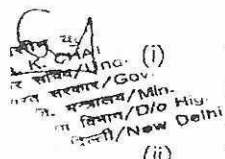 K. CHA
(i)
र सचिव/Und.
रत सरकार/Gov.
मंत्रालय/Min.
विभाग/D/o Hig.
दिल्ली/New Delhi
(ii)